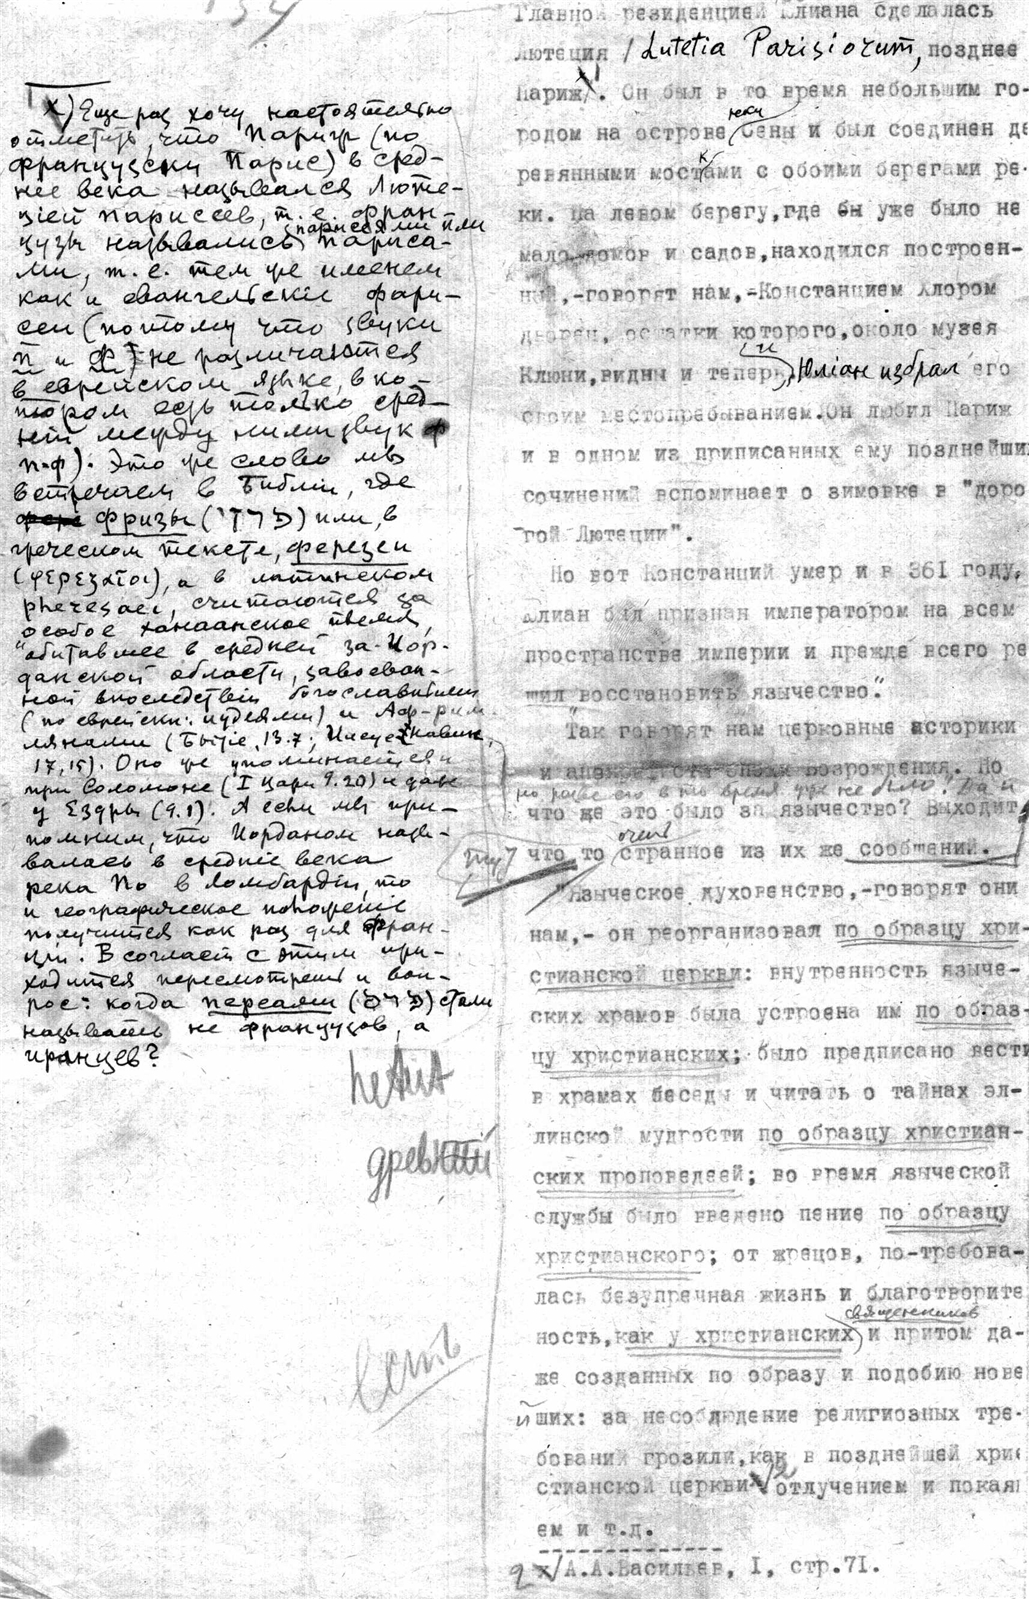 х) Еще раз хочу настоятельно
отметить, что Париж (по
французски Парис) в сред-
ние века назывался Люте-
цией париссев, т.е. фран
цузы назывались парисеями или париса-
ми, т.е. тем же именем
как и евангельскіе фари-
сеи (потому что звуки
п и ф не различаются
в еврейском языке, в ко-
тором есть только сред-
ній между ними звук
п-ф). Это же слово мы
встречаем в Библіи, где
фризы (פרזי) или, в
греческом тексте, ферезеи
(φερεζαιοι), а в латинском
pherezaei, считаются за
особое ханаанское племя,
"обитавшее в средней за-Иор-
данской области, завоеван-
ной впоследствіи богославителями
(по еврейски: иудеями) и Аф-рим-
лянами (Бытіе, 13.7; Іисус Навин,
17,15). Оно же упоминается и
при Соломоне (I Цари 9.20) и даже
у Ездры (9.1). А если мы при-
помним, что Иорданом назы-
валась в средніе века
река По в Ломбардіи, то
и географическое положеніе
получится как раз для Фран-
ціи. В согласіи с этим при-
ходится пересмотреть и воп-
рос: когда персами (פרס) стали
называть не французов, а
иранцев?
петит
древній
Есть
Главной резиденцией Юлиана сделалась
Лютеция / Lutetia Parisiorum, позднее
Париж/. Он был в то время небольшим го-
родом на острове реки Сены и был соединен де
ревянными мостками с обоими берегами ре-
ки. На левом берегу, где бы уже было не
мало домов и садов, находился построен-
ный,-говорят нам,-Константием Хлором
дворец, остатки которого, около музея
Клюни, видны и теперь, и Юліан избрал его
своим местопребыванием. Он любил Париж
и в одном из приписанных ему позднейши
сочинений вспоминает о зимовке в "доро
гой Лютеции".
Но вот Констанций умер и в 361 году,
Юлиан был признан императором на всем
пространстве империи и прежде всего ре
шил восстановить язычество."
Так говорят нам церковные историки
и апокрифисты Эпохи Возрождения. Но
но разве его в то время уже не было? Да и
что же это было за язычество? Выходит
что то очень странное из их же сообщений.
"Языческое духовенство,-говорят они
нам,- он реорганизовал по образцу хри-
стианской церкви: внутренность языче-
ских храмов была устроена им по образ-
цу христианских; было предписано вести
в храмах беседы и читать о тайнах эл-
линской мудрости по образцу христиан-
ских проповедеей; во время языческой
службы было введено пение по образцу
христианского; от жрецов, по-требова-
лась безупречная жизнь и благотворите
ность, как у христианских священников и притом да-
же созданных по образу и подобию нове
йших: за несоблюдение религиозных тре-
бований грозили, как в позднейшей хрис
стианской церкви х/2 отлучением и покаян
ем и т.д.
2 х/ А.А.Васильев, I, стр.71.